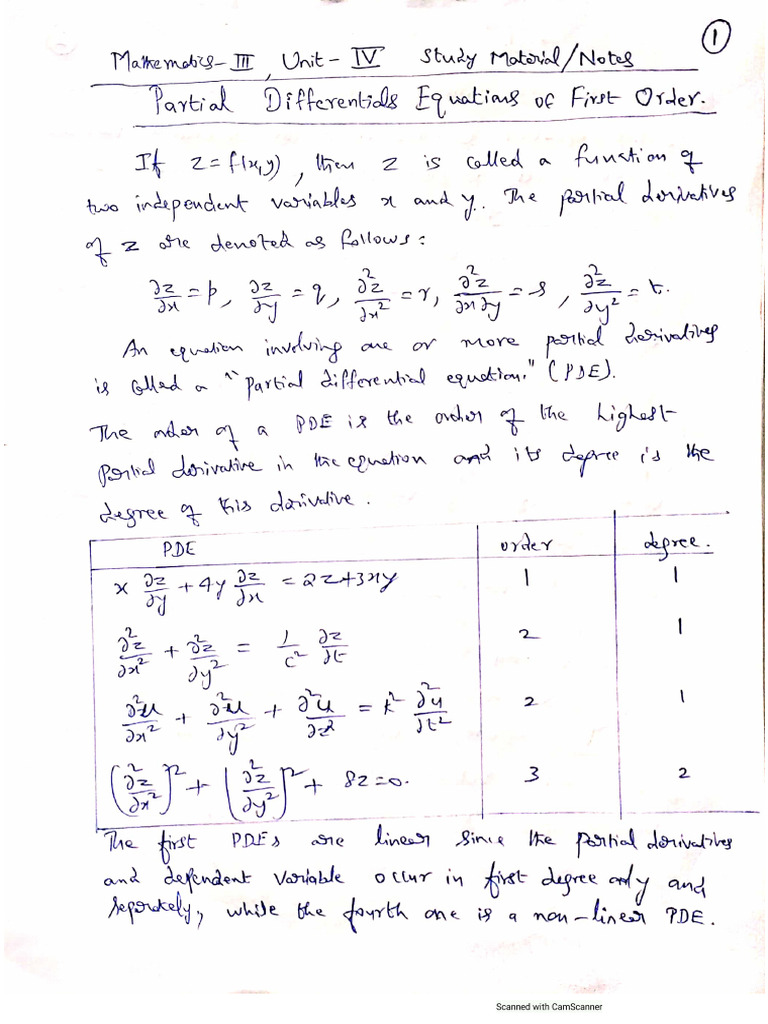 ①
Mathematics-III, Unit-IV Study Material/Notes
Partial Differentials Equations of First Order.
If z=f(x,y), then z is called a function of
two independent variables x and y. The partial derivatives
of z are denoted as follows:
∂z/∂x = p, ∂z/∂y = q, ∂²z/∂x² = r, ∂²z/∂x∂y = s, ∂²z/∂y² = t.
An equation involving one or more partial derivatives
is called a "partial differential equation." (PDE).
The order of a PDE is the order of the highest
partial derivative in the equation and its degree is the
degree of this derivative.
PDE order degree.
x ∂z/∂y + 4y ∂z/∂x = 2z+3xy 1 1
∂²z/∂x² + ∂²z/∂y² = 1/c² ∂z/∂t 2 1
∂²u/∂x² + ∂²u/∂y² + ∂²u/∂z² = k² ∂²u/∂t² 2 1
(∂²z/∂x²)² + (∂²z/∂y²)² + 8z=0. 3 2
The first PDEs are linear since the partial derivatives
and dependent variable occur in first degree only and
seperately, while the fourth one is a non-linear PDE.
Scanned with CamScanner